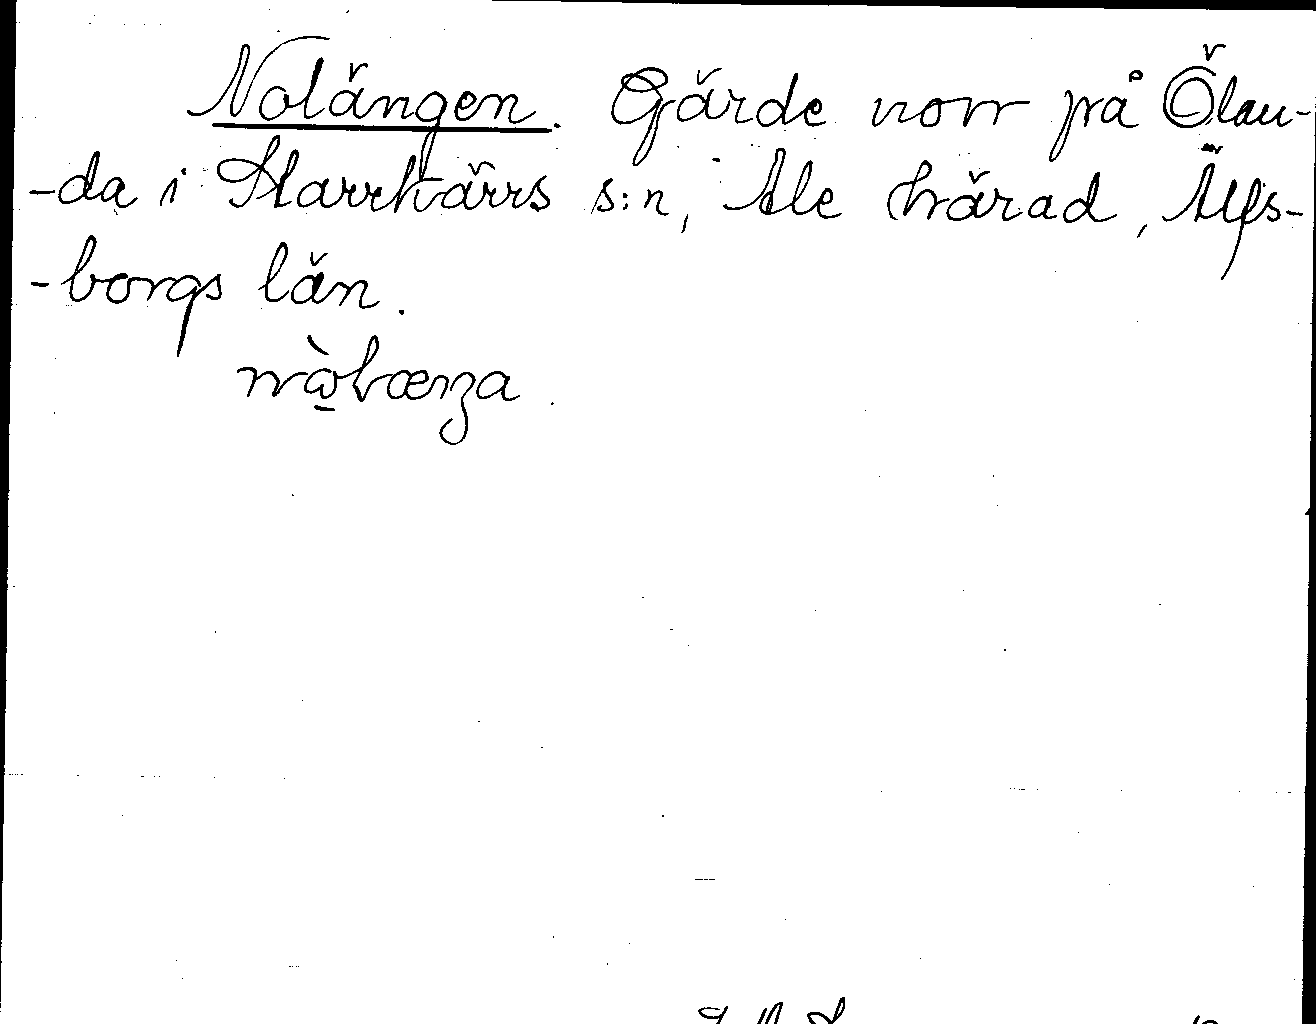 Nolängen. Gärde norr på Ölan-
-da i Starrkärrs s:n, Ale härad, Älfs-
-borgs län.